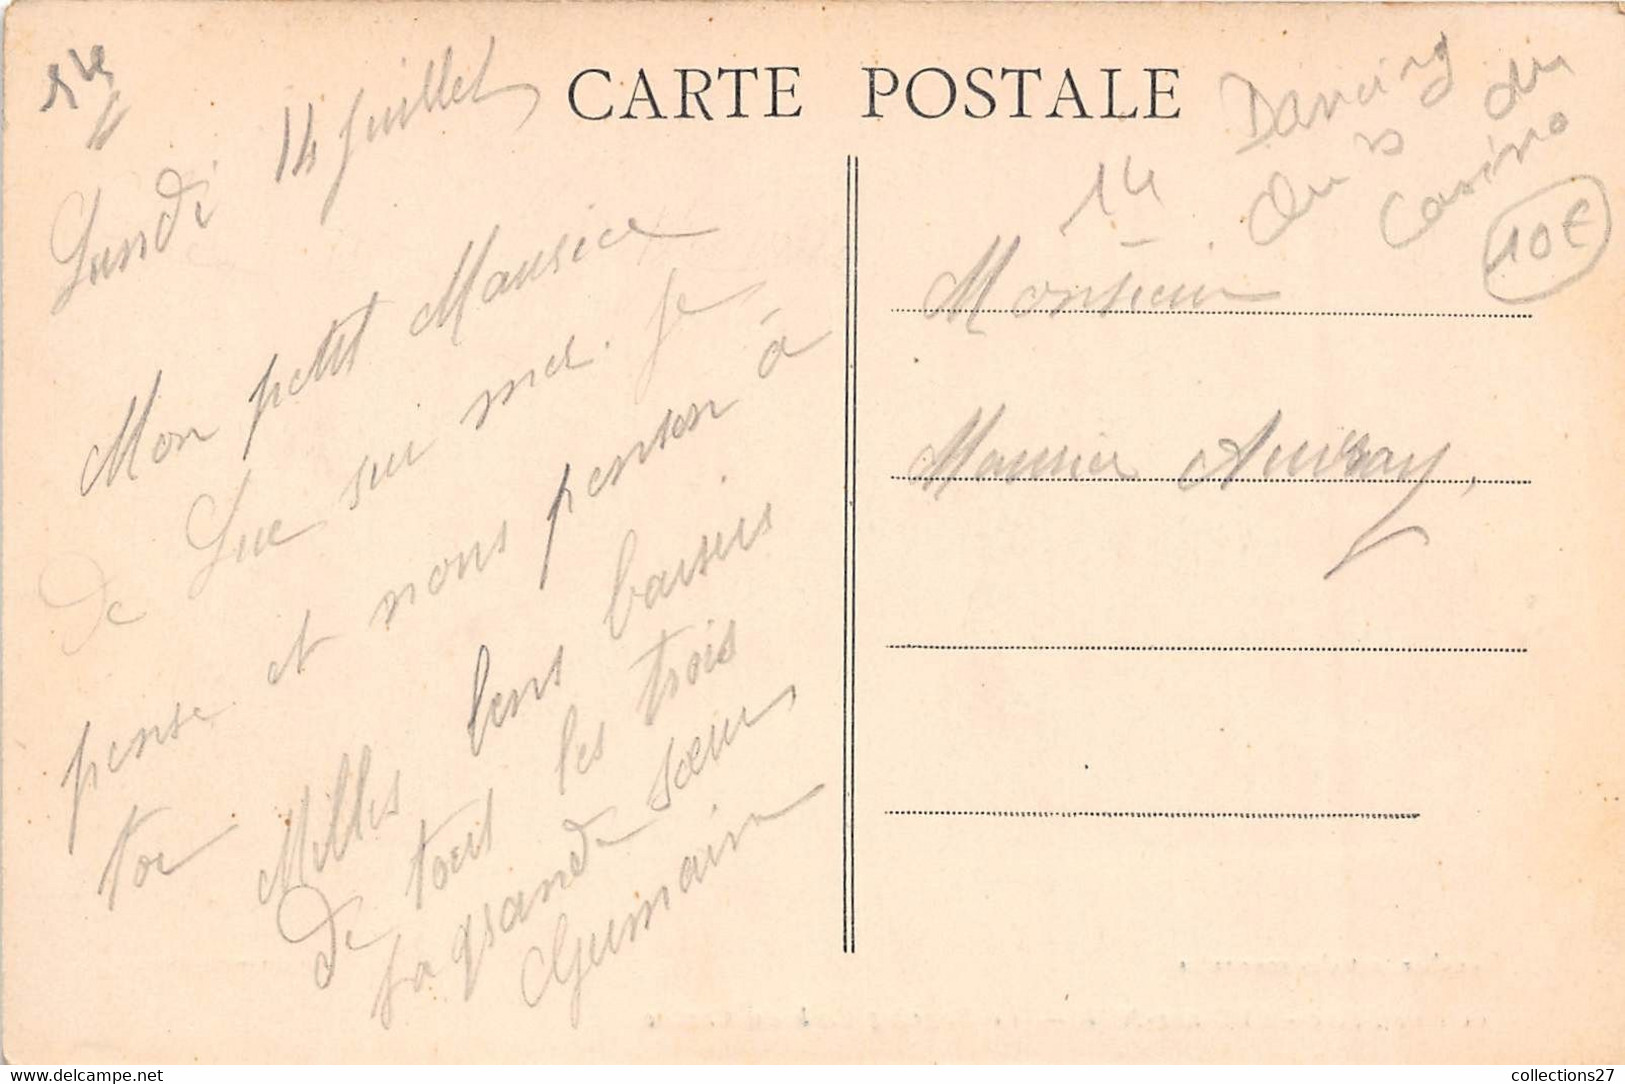 CARTE POSTALE
14
Dancing
du
du
Casino
14
10€
Lundi 14 Juillet
Mon petit Maurice
De Luc sur mer. Je
pense et nous penson à
toi Milles bons baisers
de tous les trois
ta grande sœur
Germaine
Monsieur
Maurice Auvray,
collections27